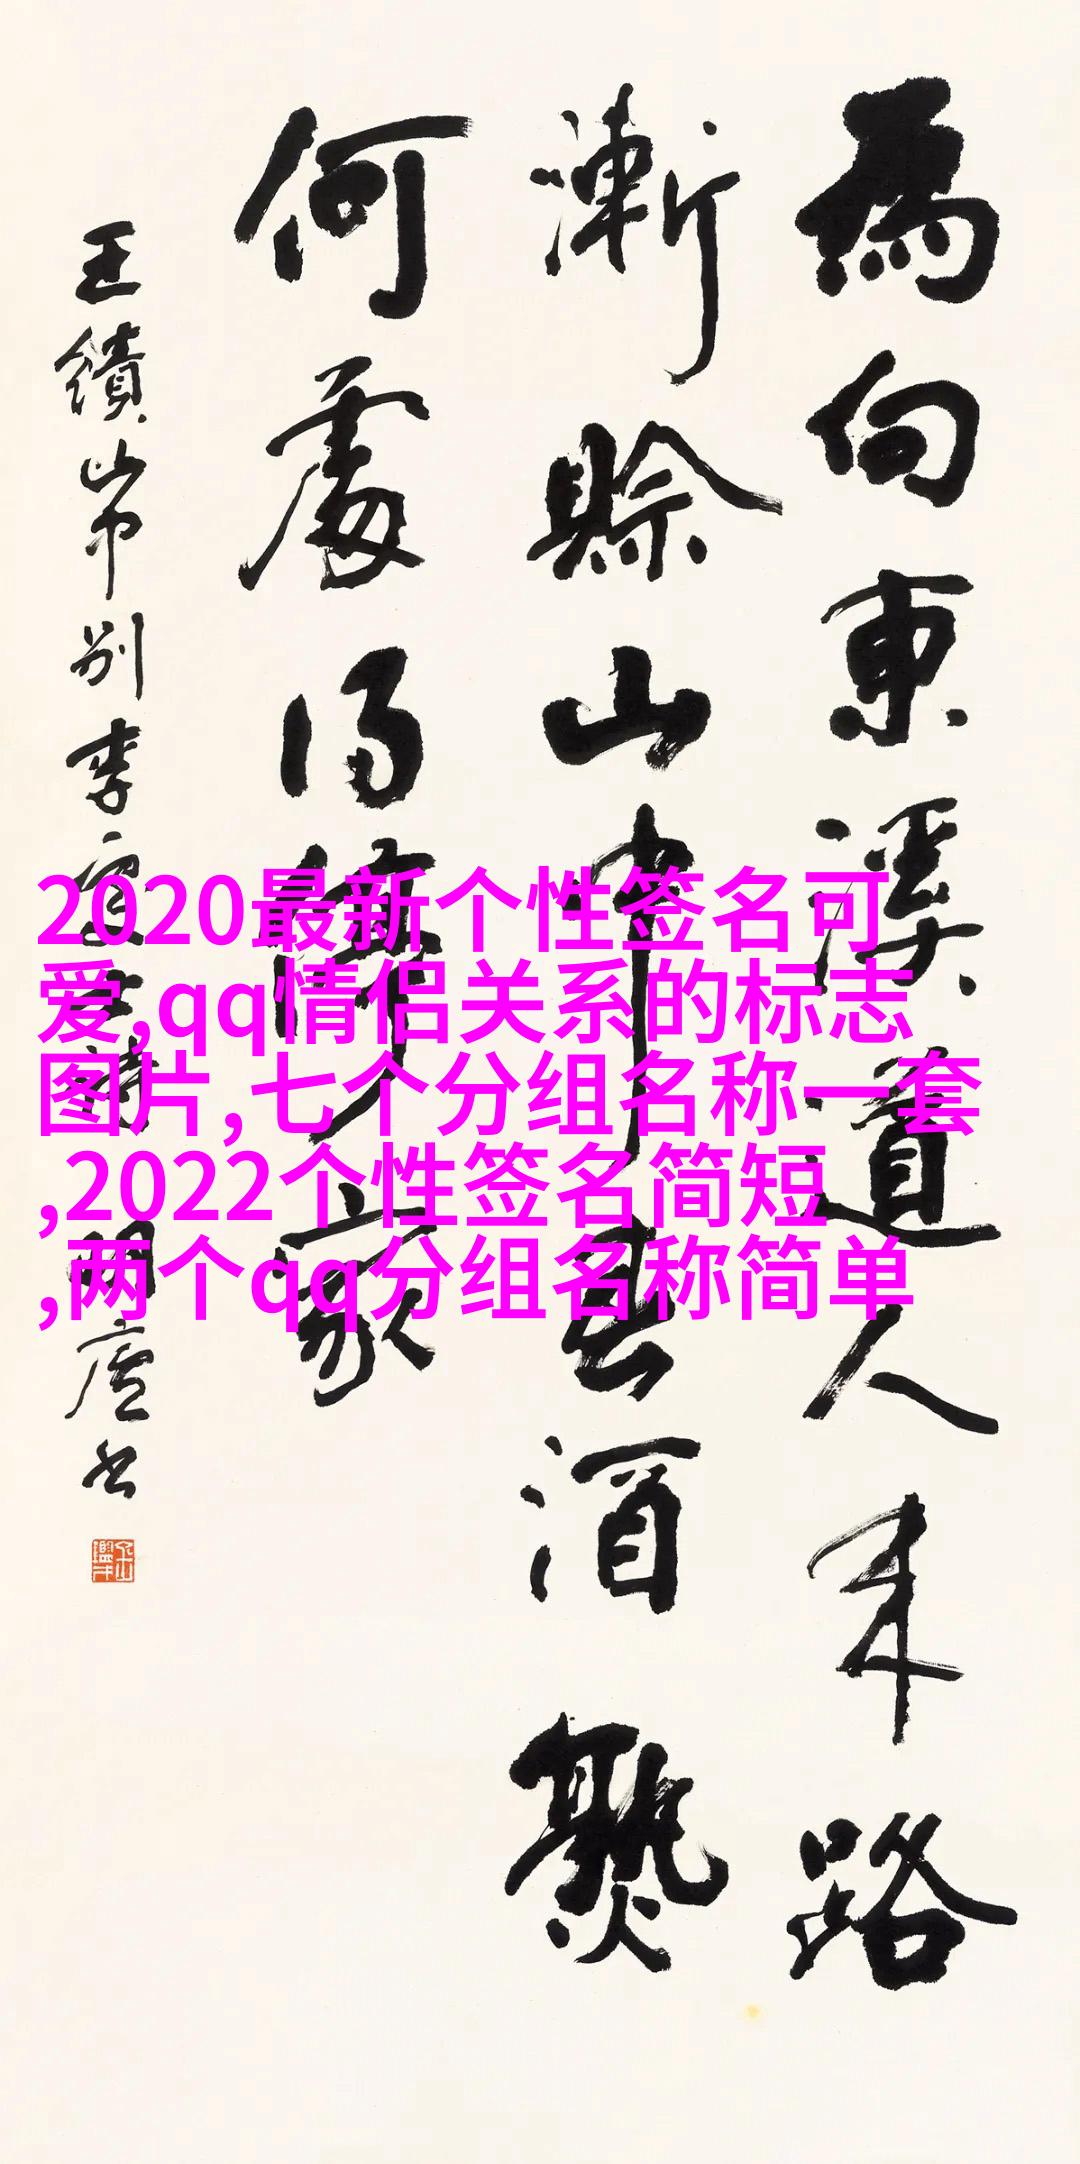 為向東溪道人来路
漸賒山中春酒熟
何處得停家
王績山中別李處士詩
廬书
2020最新个性签名可
爱,qq情侣关系的标志
图片,七个分组名称一套
,2022个性签名简短
,两个qq分组名称简单